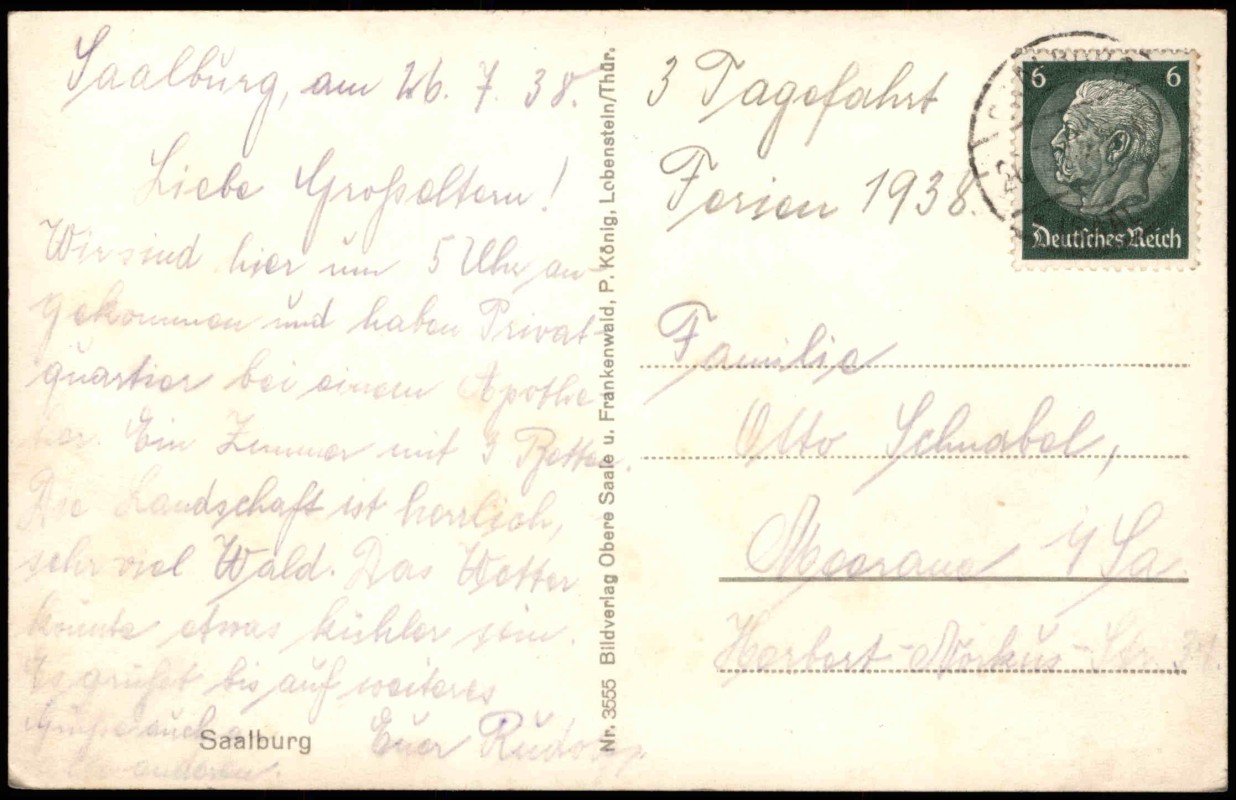 Saalburg, am 26. 7. 38.
Liebe Großeltern!
Wir sind hier um 5 Uhr an-
gekommen und haben Privat-
quartier bei einem Apothe-
ker. Ein Zimmer mit 3 Betten.
Die Landschaft ist herrlich,
sehr viel Wald. Das Wetter
könnte etwas kühler sein.
Es grüßt bis auf weiteres
Grüße auch a
Euer Rudolf
anderen.
Saalburg
Nr. 3555 Bildverlag Obere Saale u. Frankenwald, P. König, Lobenstein/Thür.
3 Tagefahrt
Ferien 1938
6 6
Deutsches Reich
Familie
Otto Schnabel,
Meerane i/Sa
Herbert-Norkus-Str.